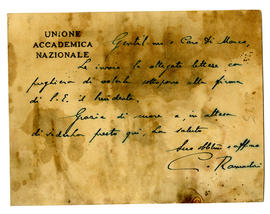 UNIONE
ACCADEMICA
NAZIONALE
Gentil.mo e Caro Di Marco,
Le invio le allegate lettere con
preghiera di volerle sottoporre alla firma
di S.E. il Presidente.
Grazie di cuore e, in attesa
di vederla presto qui, La saluto
Suo
C.